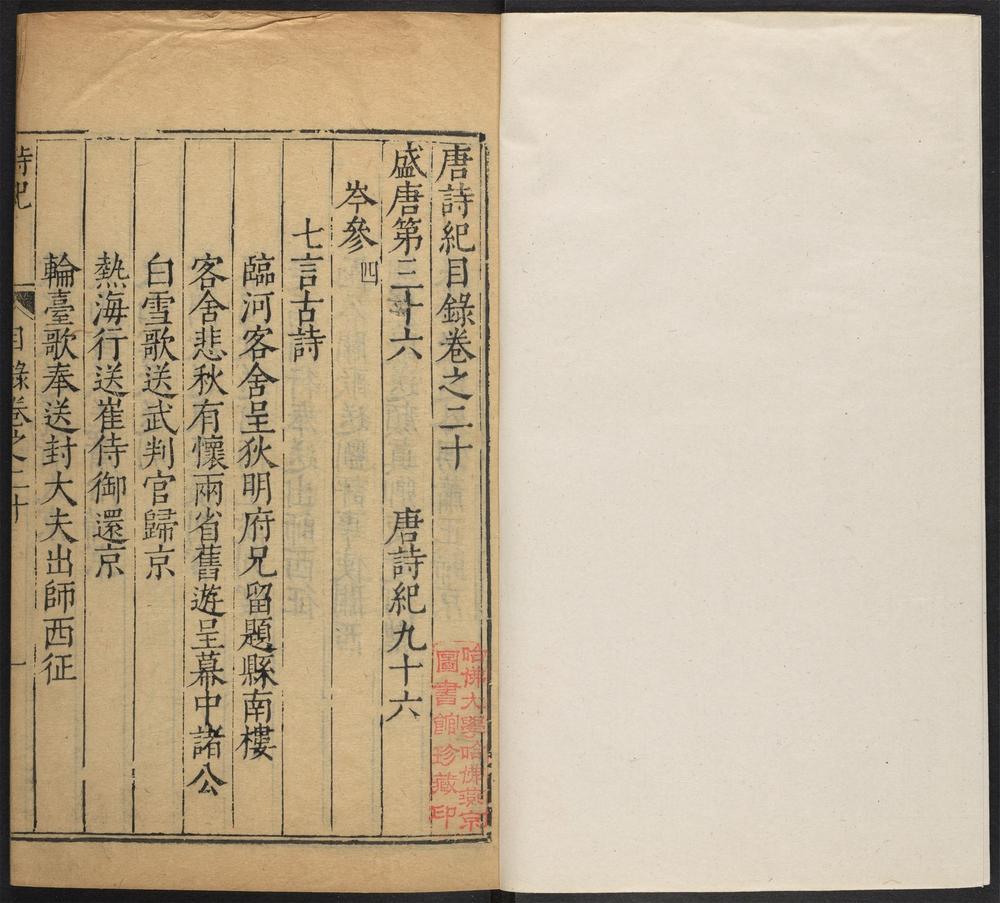 唐詩紀目錄卷之二十
盛唐第三十六　唐詩紀九十六
岑參 四
七言古詩
臨河客舍呈狄明府兄留題縣南樓
客舍悲秋有懷兩省舊遊呈幕中諸公
白雪歌送武判官歸京
熱海行送崔侍御還京
輪臺歌奉送封大夫出師西征
詩紀　目錄卷之二十　一
哈佛大學哈佛燕京
圖書館珍藏印